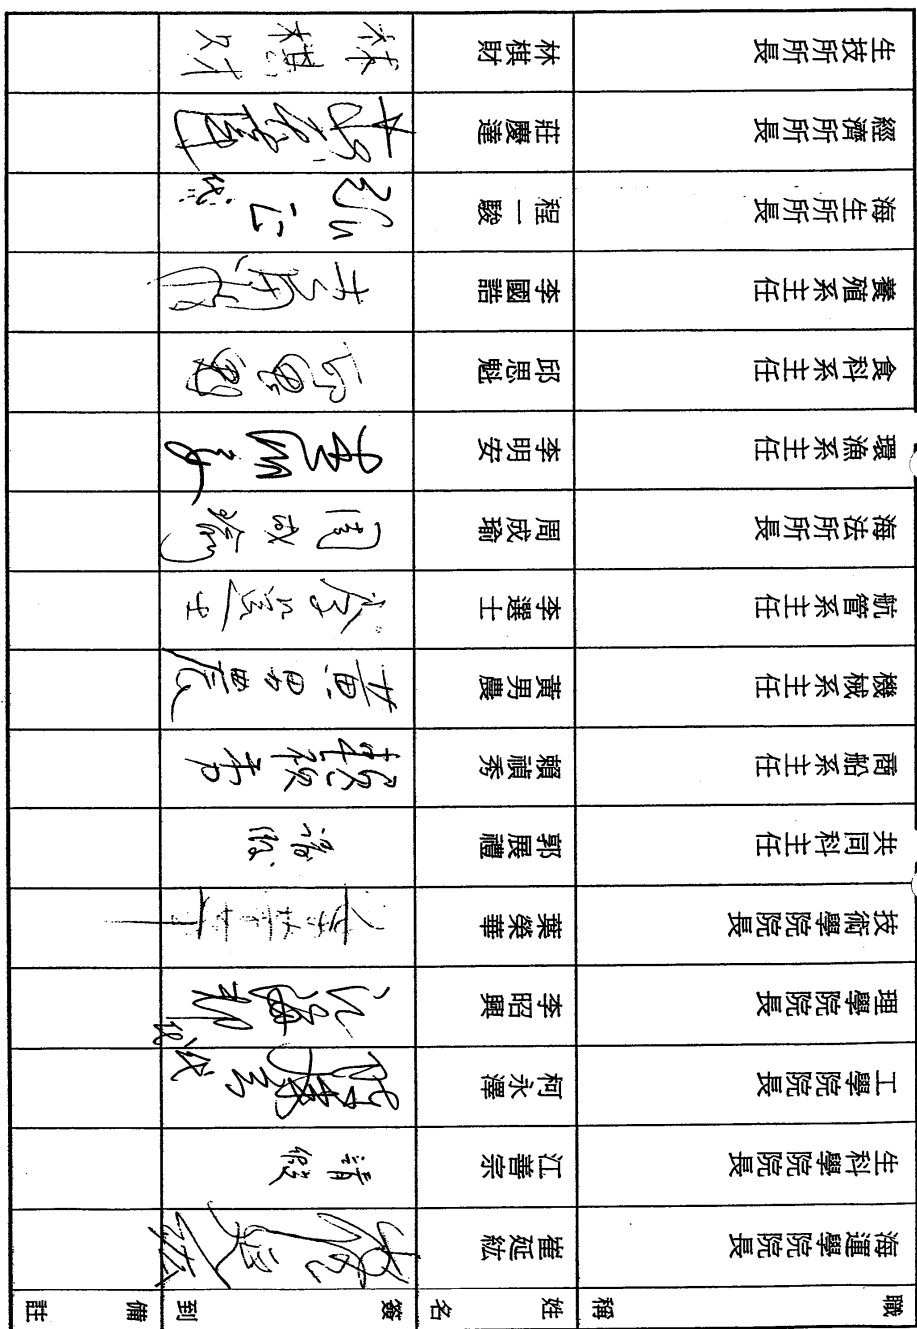 職稱
姓名
簽到
備註
海運學院院長
崔延紘
生科學院院長
江善宗
請假
工學院院長
柯永澤
理學院院長
李昭興
技術學院院長
葉榮華
共同科主任
郭展禮
請假
商船系主任
賴禎秀
賴禎秀
機械系主任
黃男農
黃男農
航管系主任
李選士
李選士
海法所所長
周成瑜
周成瑜
環漁系主任
李明安
李明安
食科系主任
邱思魁
邱思魁
養殖系主任
李國誥
海生所所長
程一駿
經濟所所長
莊慶達
莊慶達
生技所所長
林棋財
林棋財